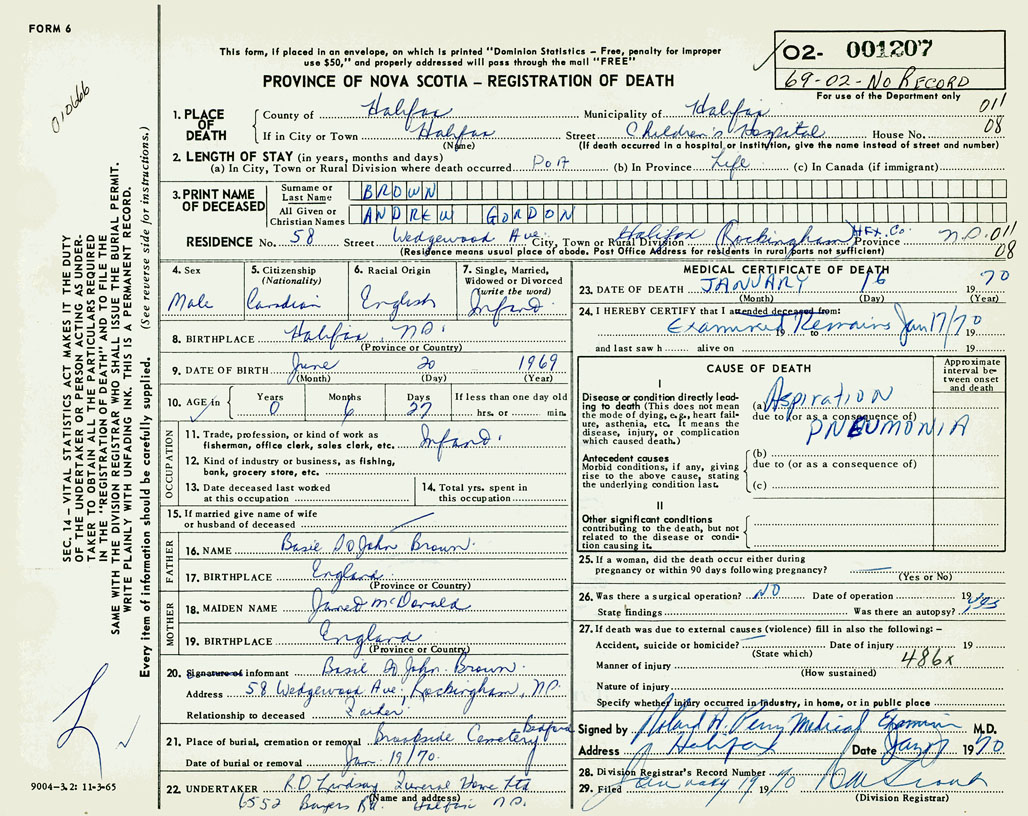 FORM 6
010666
This form, if placed in an envelope, on which is printed "Dominion Statistics – Free, penalty for improper
use $50," and properly addressed will pass through the mail "FREE"
PROVINCE OF NOVA SCOTIA – REGISTRATION OF DEATH
02- 001207
69-02-NO RECORD
For use of the Department only
1. PLACE OF DEATH
County of Halifax Municipality of Halifax 011
If in City or Town Halifax Street Children's Hospital House No. 08
(Name) (If death occurred in a hospital or institution, give the name instead of street and number)
2. LENGTH OF STAY (in years, months and days)
(a) In City, Town or Rural Division where death occurred DOA (b) In Province Life (c) In Canada (if immigrant)
3. PRINT NAME OF DECEASED
Surname or Last Name BROWN
All Given or Christian Names ANDREW GORDON
RESIDENCE No. 58 Street Wedgewood Ave. City, Town or Rural Division Halifax Rockingham HFX. Co. Province N.S. 011
(Residence means usual place of abode. Post Office Address for residents in rural parts not sufficient) 08
4. Sex
Male
5. Citizenship
(Nationality)
Canadian
6. Racial Origin
English
7. Single, Married,
Widowed or Divorced
(write the word)
Infant
8. BIRTHPLACE Halifax, N.S.
(Province or Country)
9. DATE OF BIRTH June 20 1969
(Month) (Day) (Year)
10. AGE in Years Months Days If less than one day old
0 6 27 hrs. or min.
OCCUPATION
11. Trade, profession, or kind of work as
fisherman, office clerk, sales clerk, etc. Infant
12. Kind of industry or business, as fishing,
bank, grocery store, etc.
13. Date deceased last worked
at this occupation
14. Total yrs. spent in
this occupation
15. If married give name of wife
or husband of deceased
FATHER
16. NAME Basil D John Brown
17. BIRTHPLACE England
(Province or Country)
MOTHER
18. MAIDEN NAME Janet McDonald
19. BIRTHPLACE England
(Province or Country)
20. Signature of informant Basil D John Brown
Address 58 Wedgewood Ave; Rockingham, N.S.
Relationship to deceased Father
21. Place of burial, cremation or removal Brookside Cemetery Bedford
Date of burial or removal Jan. 19/70
22. UNDERTAKER R.D. Lindsay Funeral Home Ltd
(Name and address)
6552 Bayers Rd. Halifax N.S.
MEDICAL CERTIFICATE OF DEATH
23. DATE OF DEATH JANUARY 16 1970
(Month) (Day) (Year)
24. I HEREBY CERTIFY that I attended deceased from:
Examined Remains Jan 17/70 19
and last saw h alive on 19
CAUSE OF DEATH
Approximate interval between onset and death
I
Disease or condition directly leading to death (This does not
the mode of dying, e.g., heart failure, asthenia, etc. It means the
disease, injury, or complication
which caused death.)
(a) Aspiration
due to (or as a consequence of)
PNEUMONIA
Antecedent causes
Morbid conditions, if any, giving
rise to the above cause, stating
the underlying condition last.
(b)
due to (or as a consequence of)
(c)
II
Other significant conditions
contributing to the death, but not
related to the disease or condition causing it.
25. If a woman, did the death occur either during
pregnancy or within 90 days following pregnancy?
(Yes or No)
26. Was there a surgical operation? NO Date of operation 19
State findings Was there an autopsy? yes
27. If death was due to external causes (violence) fill in also the following: –
Accident, suicide or homicide? Date of injury 19
(State which)
Manner of injury 486x
(How sustained)
Nature of injury
Specify whether injury occurred in industry, in home, or in public place
Signed by Roland H. Perry Medical Examiner M.D.
Address Halifax Date Jan 17 1970
28. Division Registrar's Record Number
29. Filed January 19 1970
(Division Registrar)
SEC. 14 – VITAL STATISTICS ACT MAKES IT THE DUTY
OF THE UNDERTAKER OR PERSON ACTING AS UNDER-
TAKER TO OBTAIN ALL THE PARTICULARS REQUIRED
IN THE "REGISTRATION OF DEATH" AND TO FILE THE
SAME WITH THE DIVISION REGISTRAR WHO SHALL ISSUE THE BURIAL PERMIT.
WRITE PLAINLY WITH UNFADING INK. THIS IS A PERMANENT RECORD.
Every item of information should be carefully supplied. (See reverse side for instructions.)
9004-3.2: 11-3-65